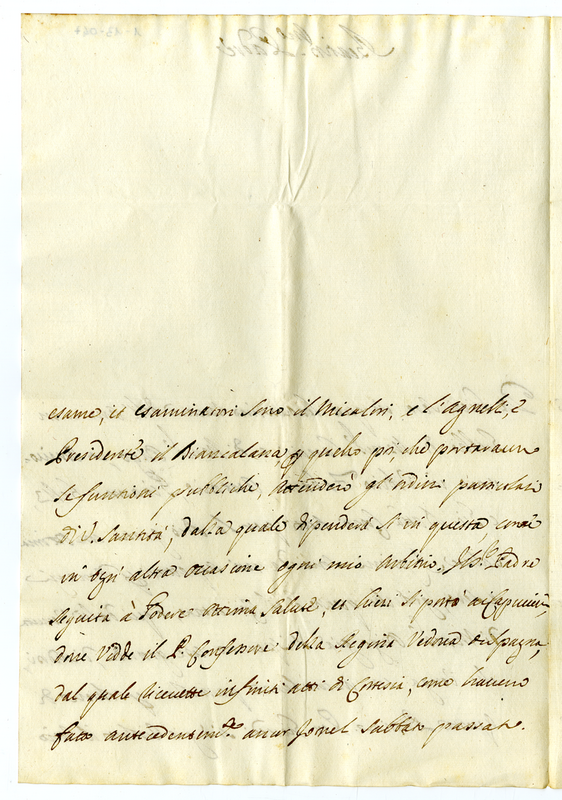 esame, et esaminatori sono il Micalori, e l'Agnelli, e
Presidente il Biancalana, quello poi, che portaranno
le funzioni publiche, attenderò gl'ordini particolari
di V. Santità, dalla quale dipenderà sì in questa, come
in ogni altra occasione ogni mio arbitrio. Padre
seguita à godere ottima salute, et hieri si portò a Capuccini,
dove vidde il P. Confessore della Regina Vedova di Spagna,
dal quale ricevette infiniti atti di Cortesia, come haveva
fatto antecedentem.te ancor Sabbato passato.